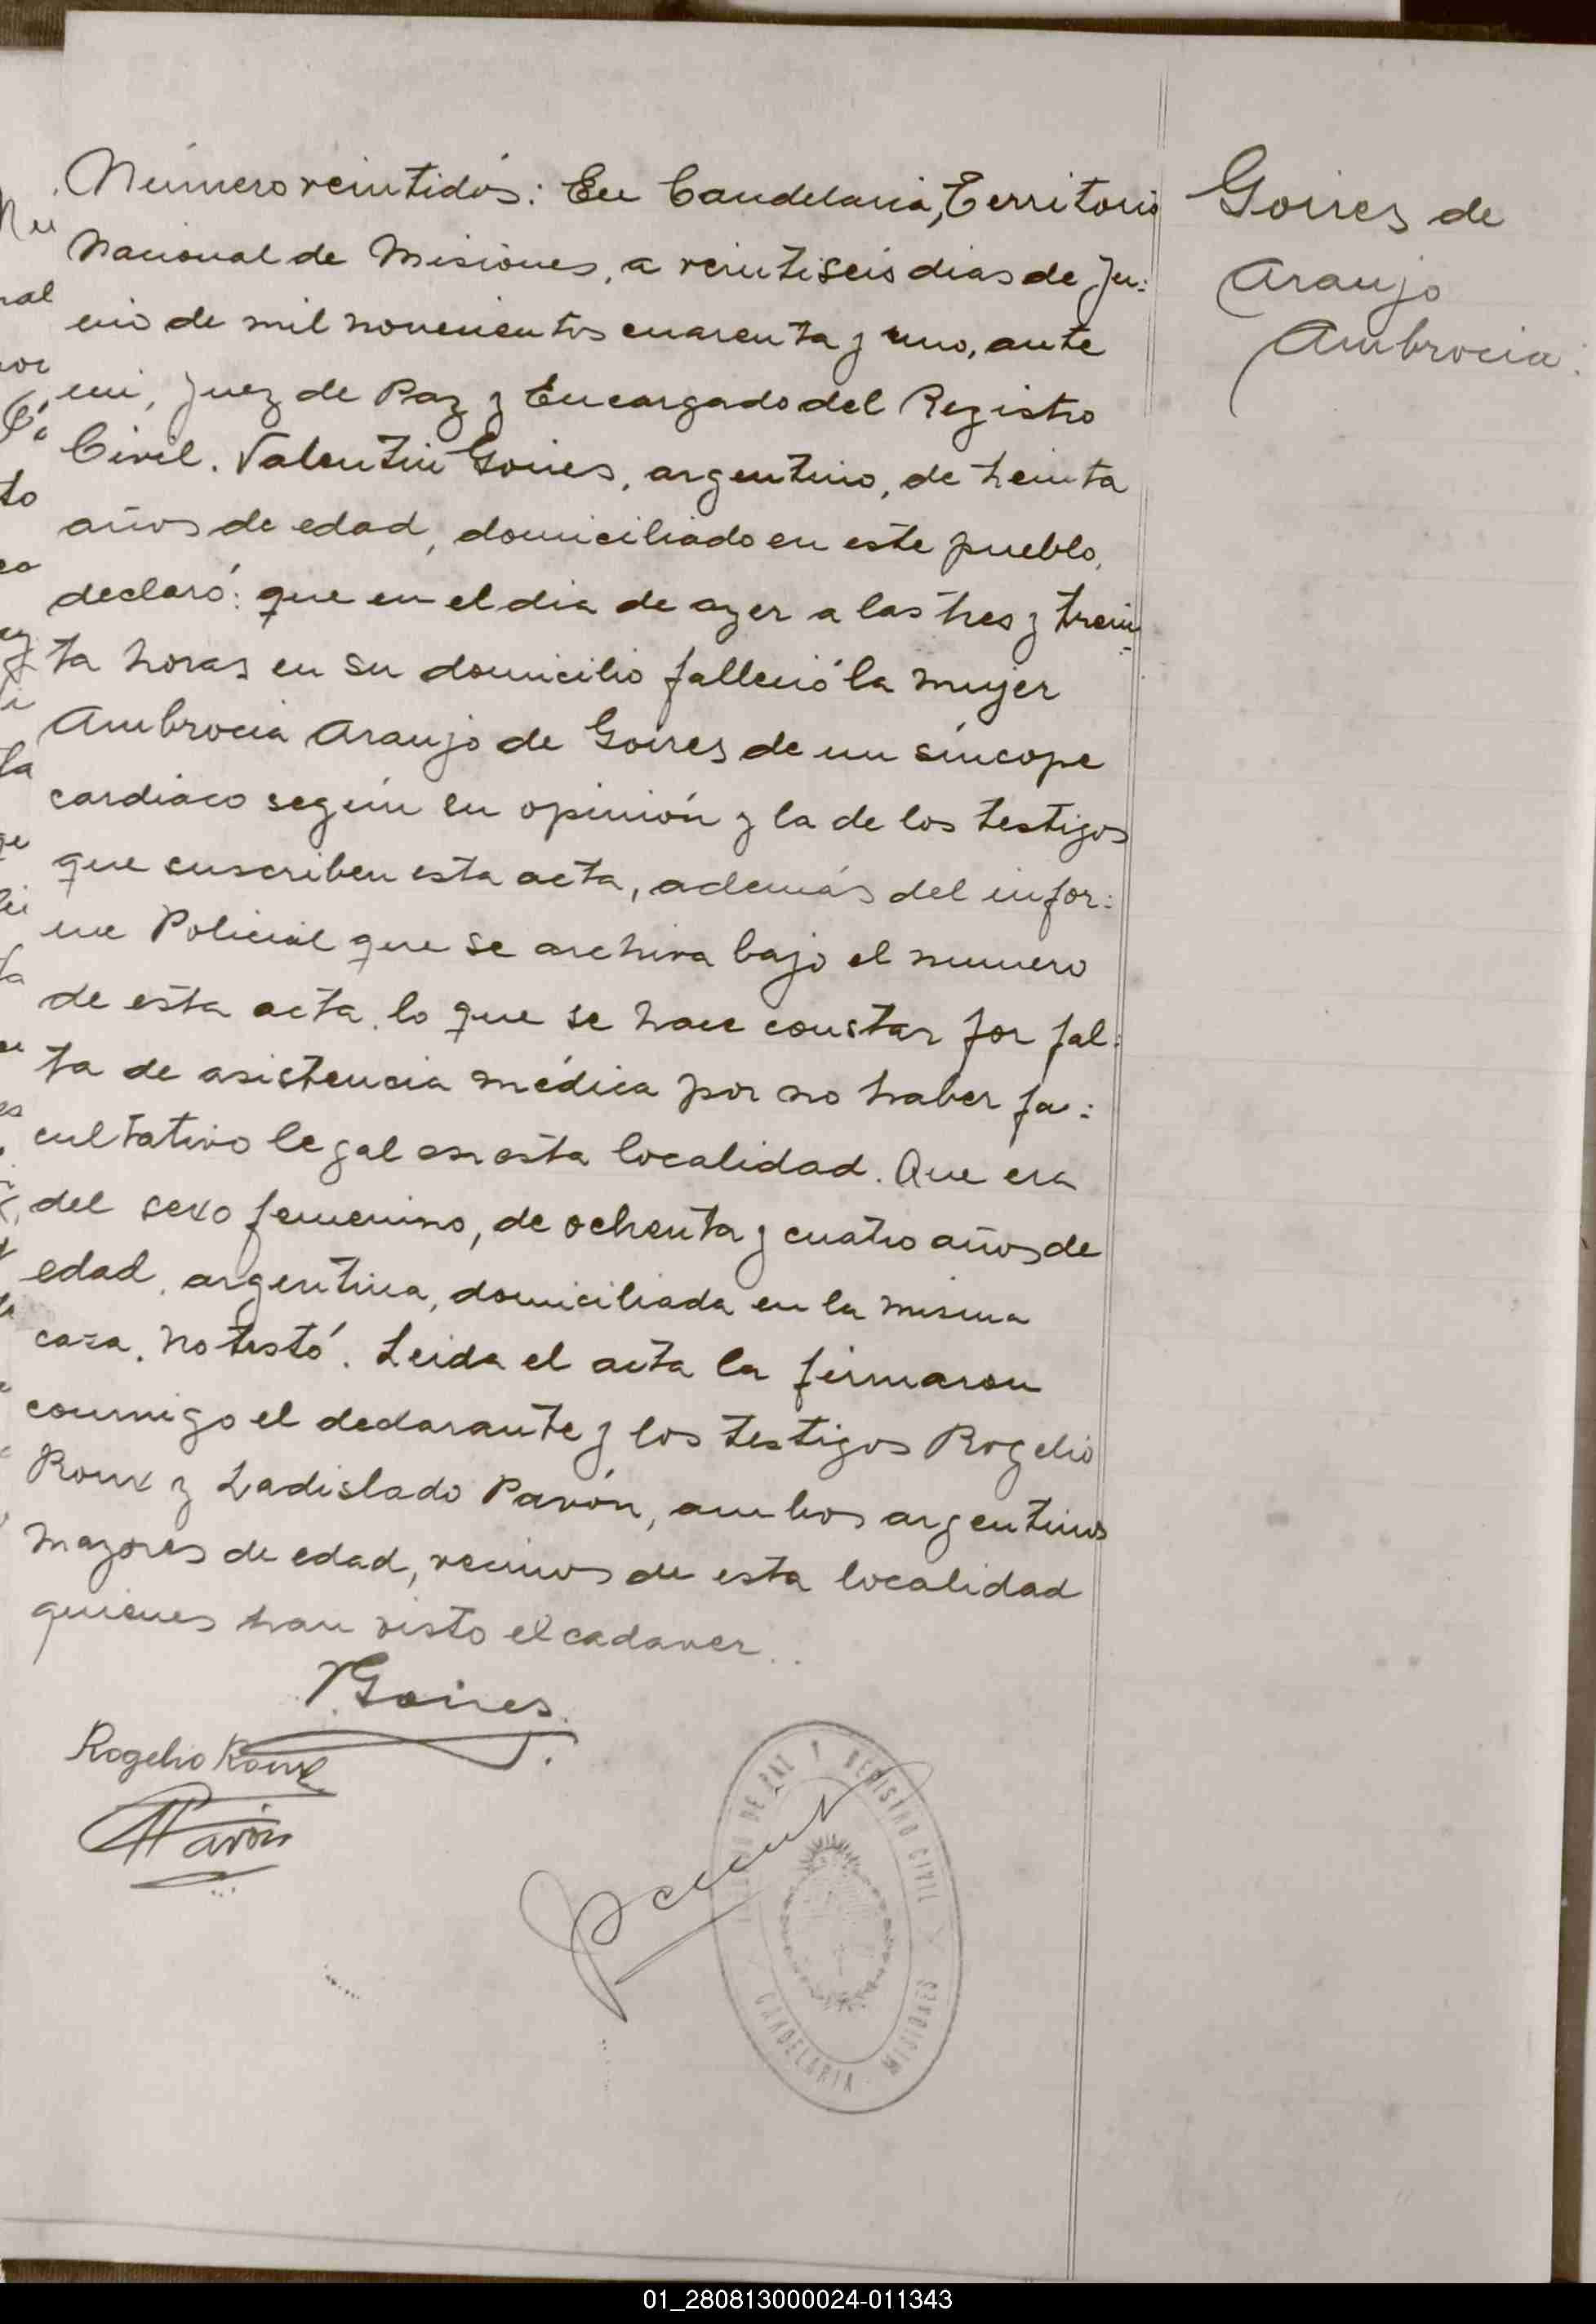 Número veintidós: En Candelaria, Territorio
Nacional de Misiones, a veintiseis dias de Ju=
nio de mil novecientos cuarenta y uno, ante
mi, Juez de Paz y Encargado del Registro
Civil. Valentin Goires, argentino, de treinta
años de edad, domiciliado en este pueblo,
declaró: que en el dia de ayer a las tres y trein=
ta horas en su domicilio falleció la mujer
Ambrocia Araujo de Goires de un síncope
cardiaco según su opinión y la de los testigos
que suscriben esta acta, además del infor=
me Policial que se archiva bajo el numero
de esta acta, lo que se hace constar por fal=
ta de asistencia médica por no haber fa=
cultativo legal en esta localidad. Que era
del sexo femenino, de ochenta y cuatro años de
edad, argentina, domiciliada en la misma
casa. No testó. Leida el acta la firmaron
conmigo el declarante y los testigos Rogelio
Roux y Ladislado Pavón, ambos argentinos
mayores de edad, vecinos de esta localidad
quienes han visto el cadaver.
Goires de
Araujo
Ambrocia.
V. Goires.
Rogelio Roux
Pavón
DE PAZ Y REGISTRO CIVIL
CANDELARIA MISIONES
01_280813000024-011343